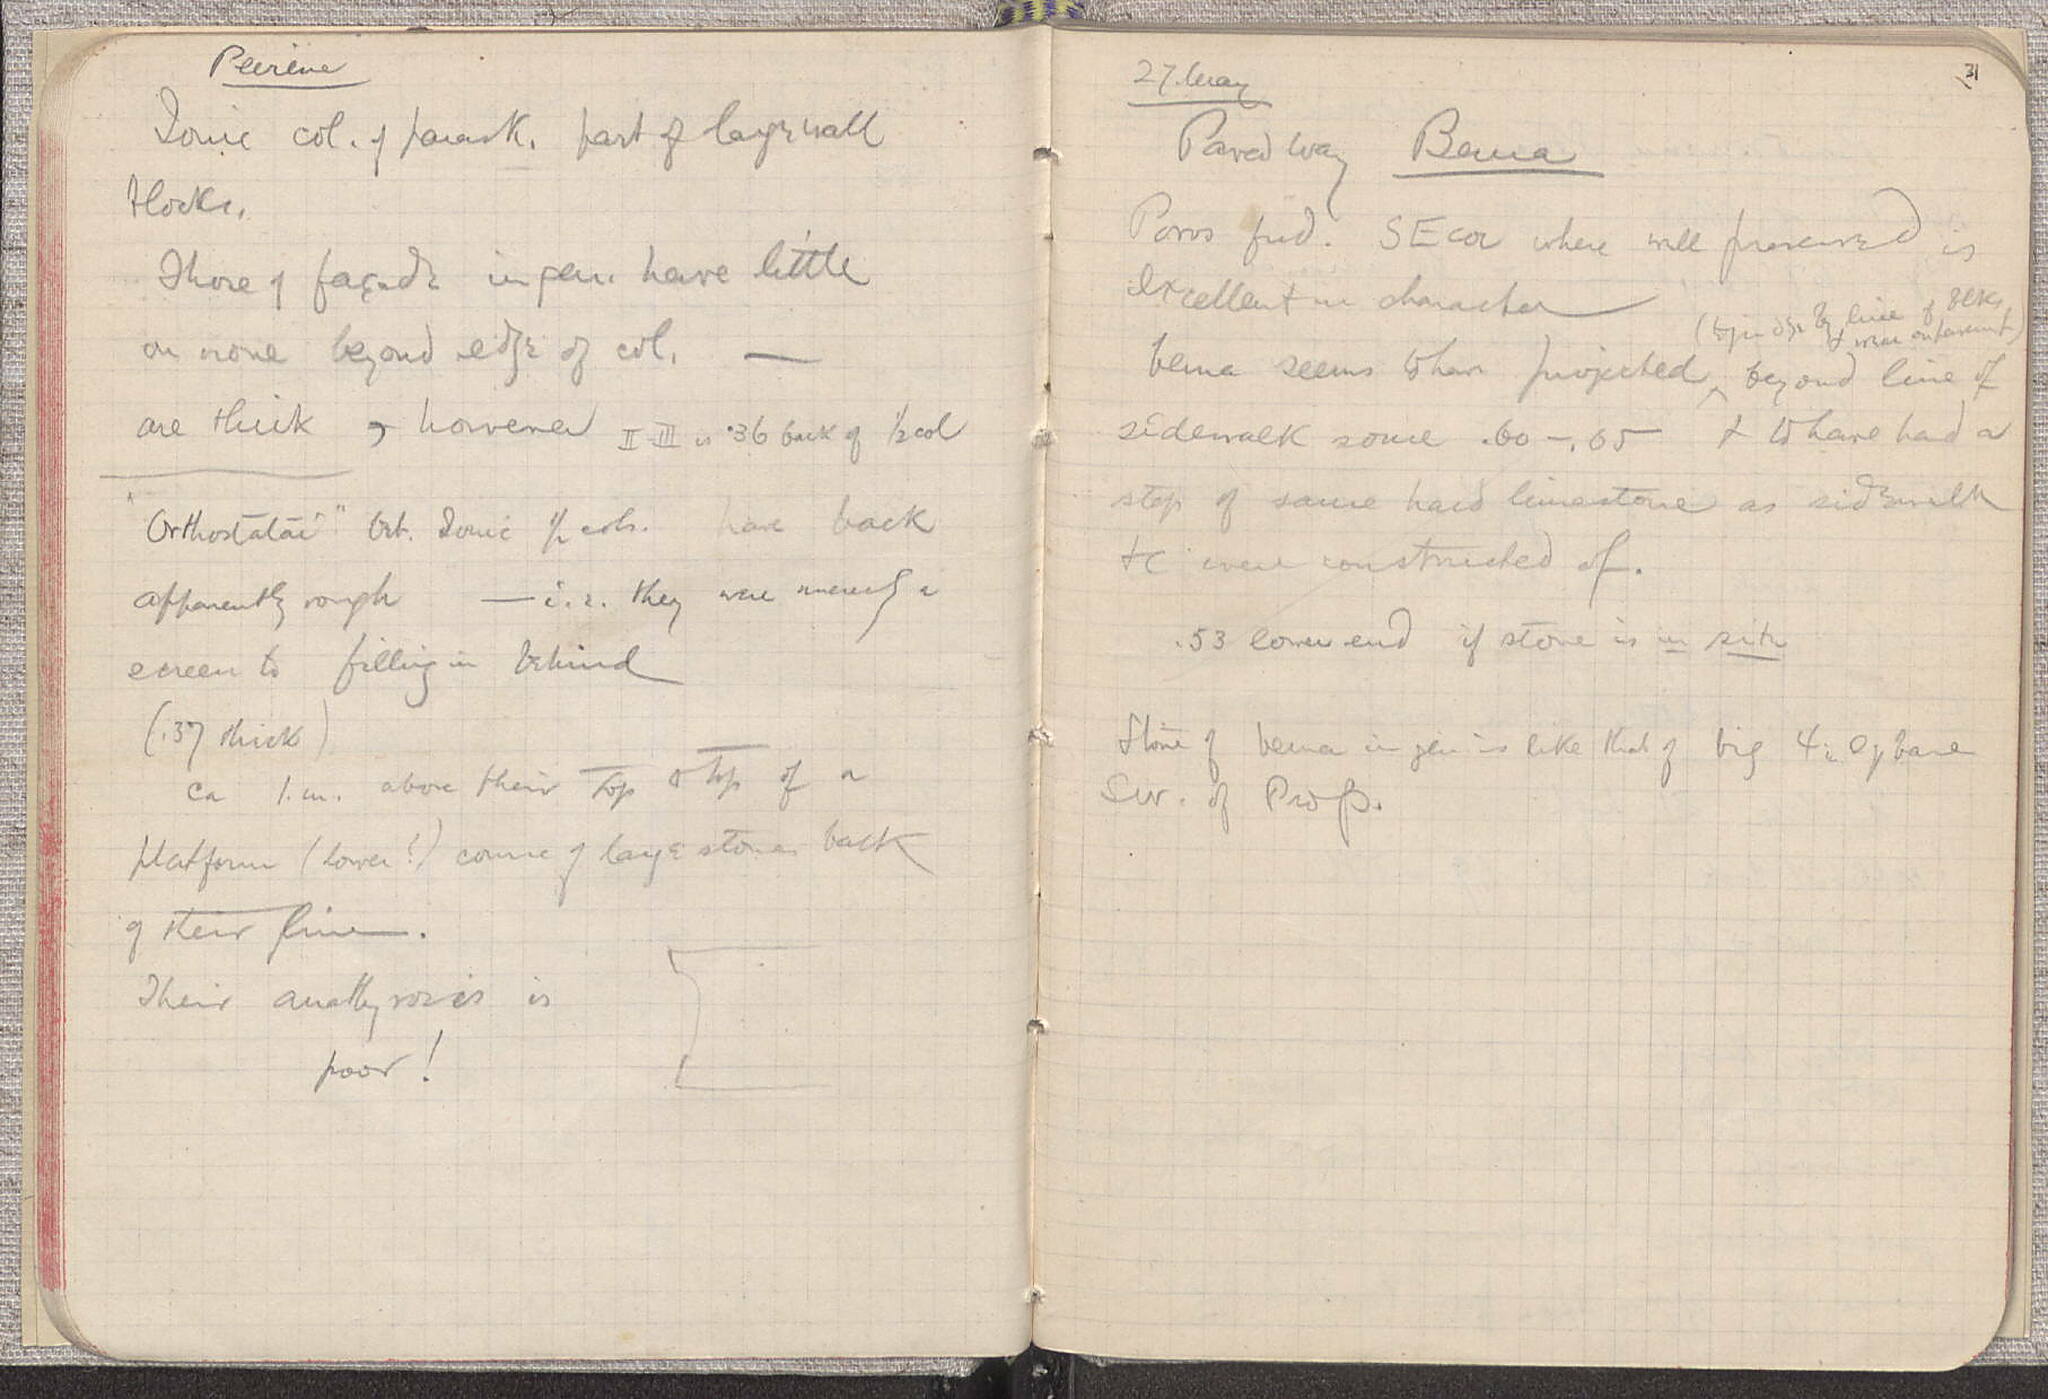 Peirene
Ionic col. of parask. part of large wall
blocks.
Those of façade in gen. have little
or none beyond edge of col. —
are thick, however II-III is .36 back of ½ col
"Orthostatai" bet. Ionic ½ cols. have back
apparently rough — i.e. they were merely a
screen to filling in behind
(.37 thick)
ca 1.m. above their top & top of a
platform (lower?) course of large stones back
of their line.
Their anathyrosis is
poor!
27. May
31
Paved way Bema
Poros fnd. SE cor where well preserved is
excellent in character
(to judge by line of blks
& wear on pavemt)
bema seems to have projected beyond line of
sidewalk some .60 – .65 & to have had a
step of same hard limestone as sidewalk
were constructed of.
.53 lower end if stone is in situ
Stone of bema in gen is like that of big base
SW. of Prop.